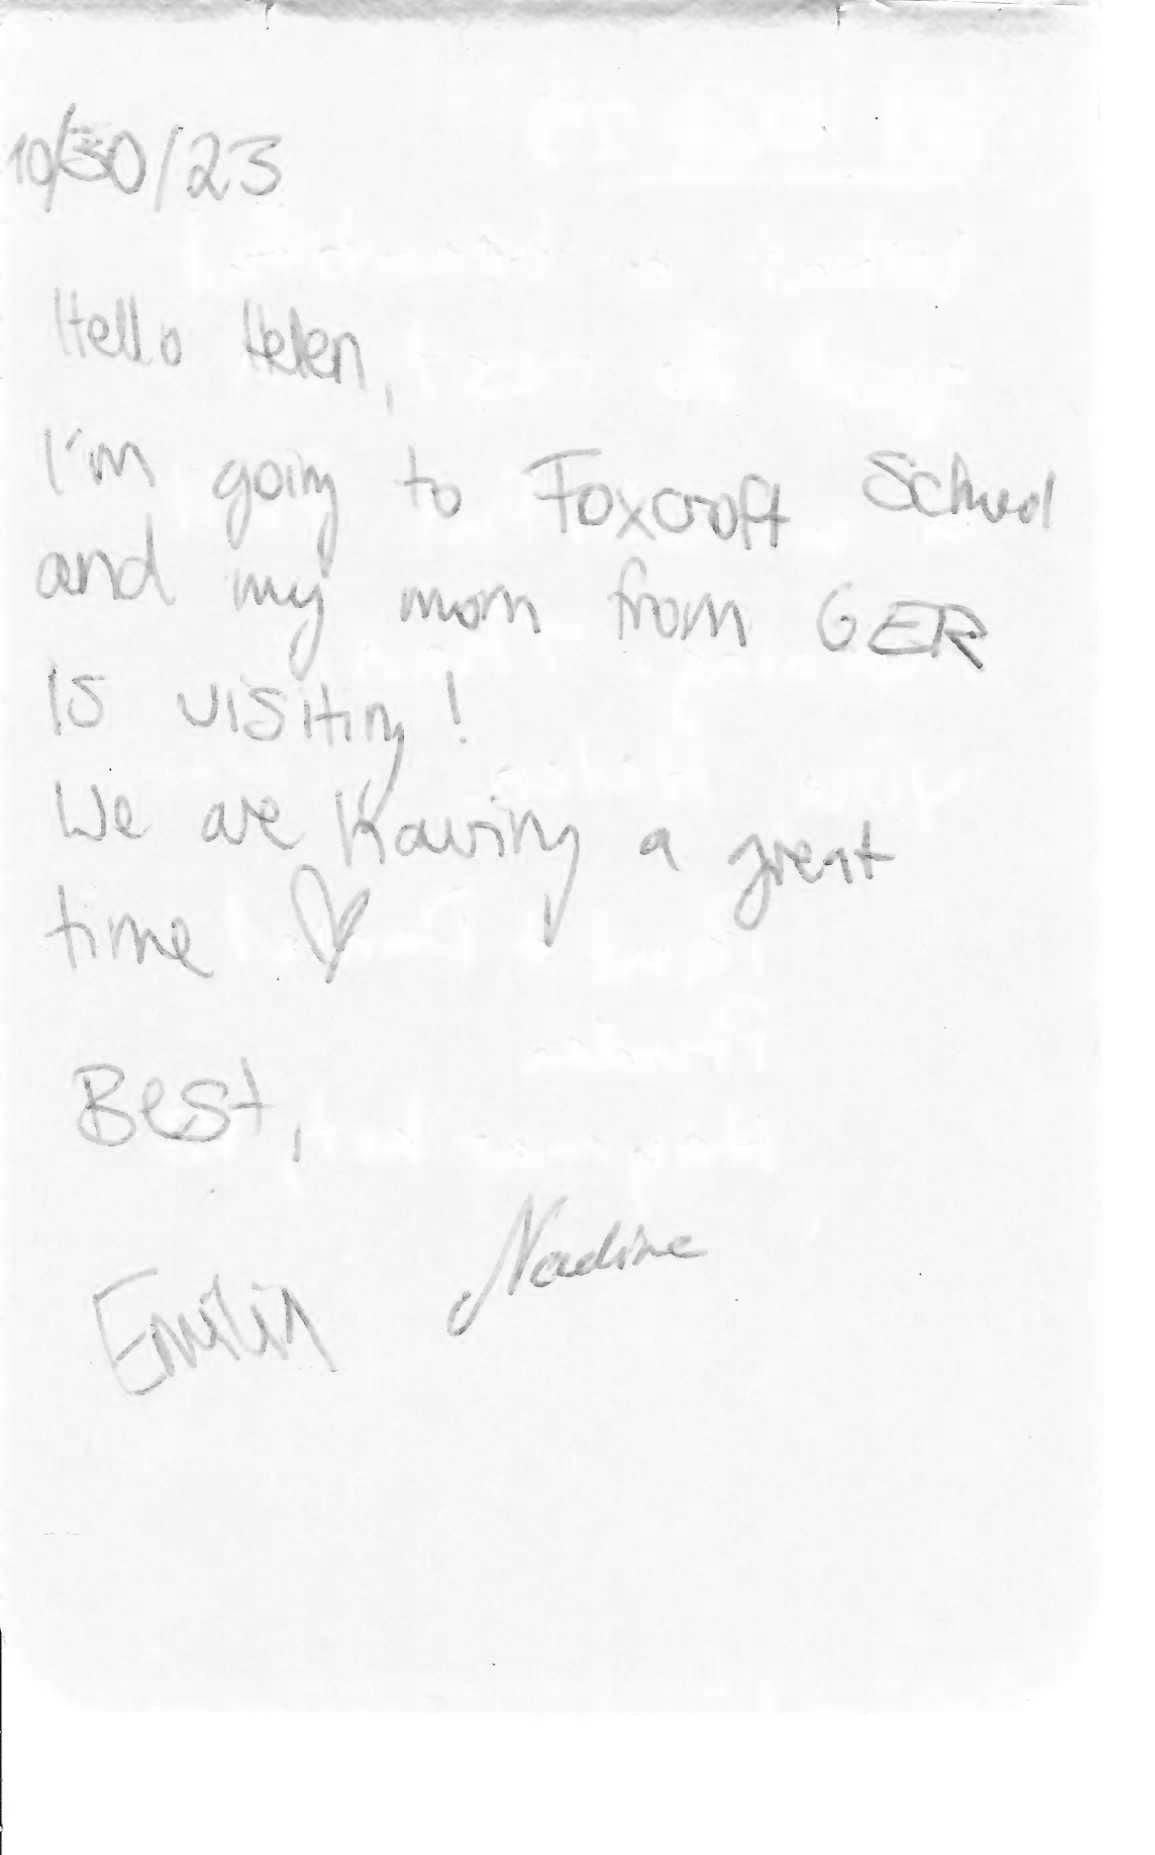 10/30/23
Hello Helen,
I'm going to Foxcroft School
and my mom from GER
is visiting!
We are having a great
time ♡
Best,
Nadine
Emilin